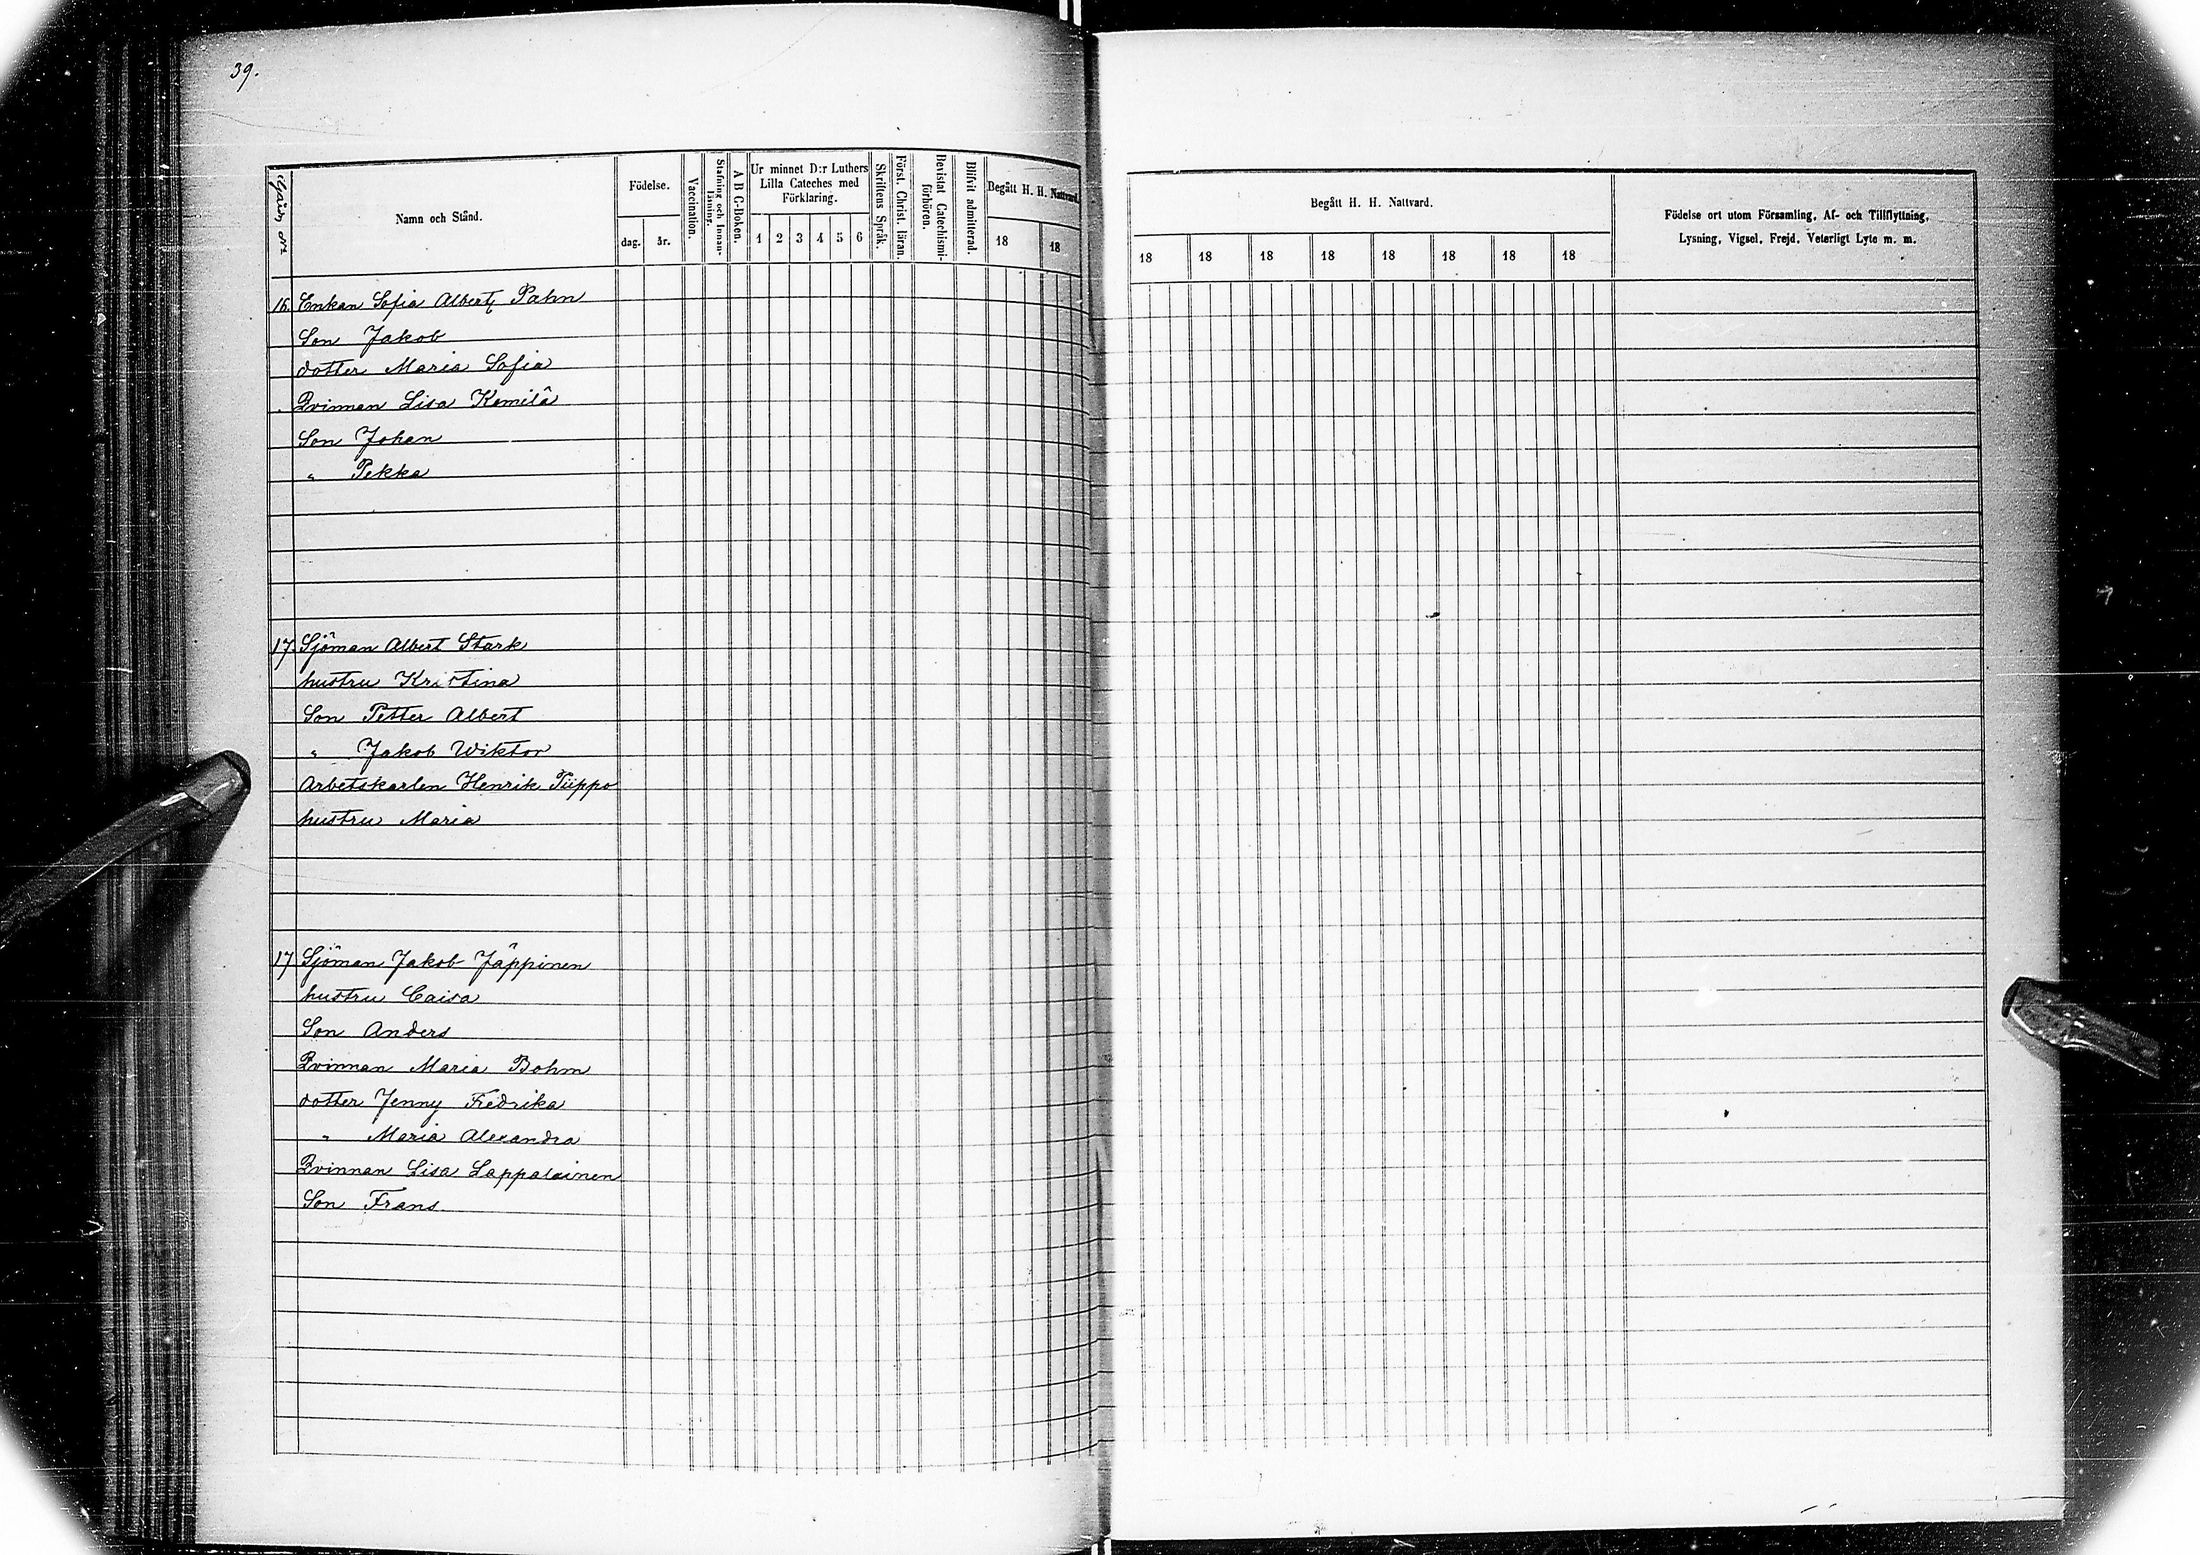 39.
Gård №
Namn och Stånd.
Födelse.
dag. år.
Vaccination.
Stafning och Innanläsning.
A B C-Boken.
Ur minnet D:r Luthers
Lilla Cateches med
Förklaring.
1 2 3 4 5 6
Skriftens Språk.
Först. Christ. läran.
Bevistat Catechismiförhören.
Blifvit admitterad.
Begått H. H. Nattvard.
18 18
16. Enkan Sofia Albert Pahn
Son Jakob
dotter Maria Sofia
Qvinnan Lisa Kemilä
Son Johan
" Pekka
17. Sjöman Albert Stark
hustru Kristina
Son Petter Albert
" Jakob Wiktor
Arbetskarlen Henrik Piippo
hustru Maria
17 Sjöman Jakob Jäppinen
hustru Caisa
Son Anders
Qvinnan Maria Bohm
dotter Jenny Fredrika
" Maria Alexandra
Qvinnan Lisa Lappalainen
Son Frans
Begått H. H. Nattvard.
18 18 18 18 18 18 18 18
Födelse ort utom Församling, Af- och Tillflyttning,
Lysning, Vigsel, Frejd, Veterligt Lyte m. m.